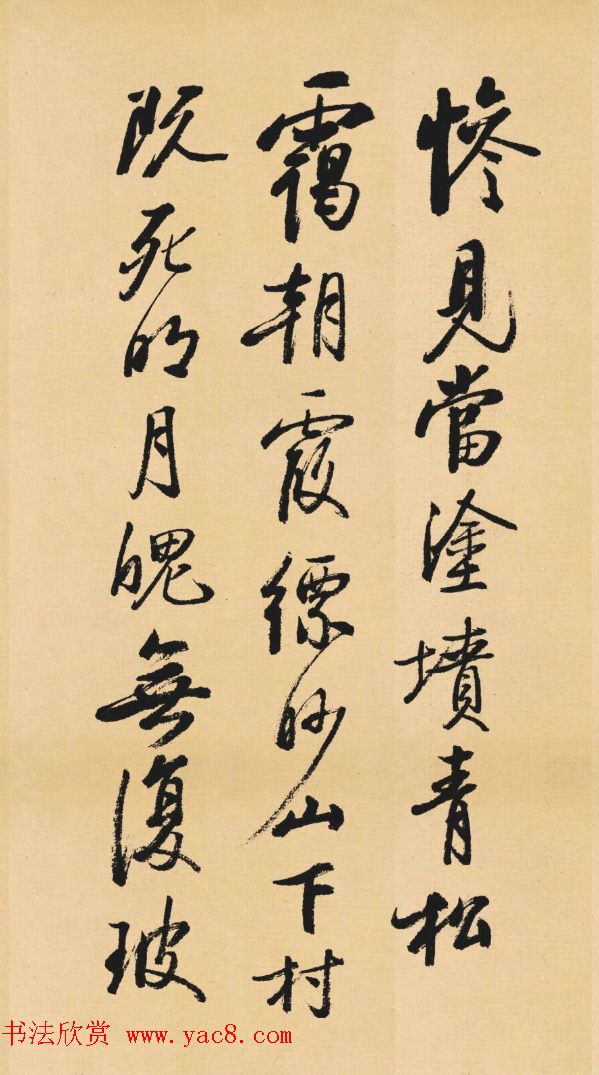 惨見當塗墳青松
靄朝霞縹眇山下村
既死明月魄無復玻
书法欣赏 www.yac8.com